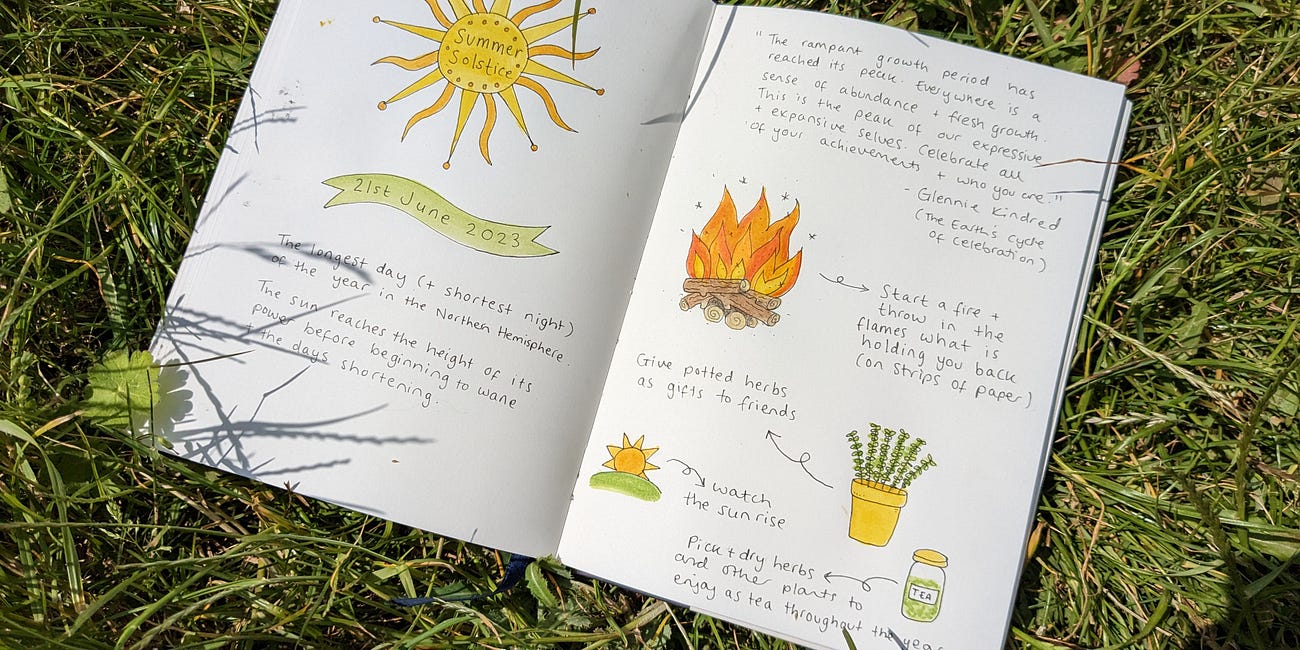 Summer
Solstice
21st June 2023
The longest day (+ shortest night)
of the year in the Northen Hemisphere.
The sun reaches the height of its
power before beginning to wane
+ the days shortening.
"The rampant growth period has
reached its peak. Everywhere is a
sense of abundance + fresh growth.
This is the peak of our expressive
+ expansive selves. Celebrate all
of your achievements + who you are."
- Glennie Kindred
(The Earth's cycle
of celebration)
Start a fire +
throw in the
flames what is
holding you back
(on strips of paper)
Give potted herbs
as gifts to friends
watch
the sunrise
Pick + dry herbs
and other plants to
enjoy as tea throughout the year
TEA